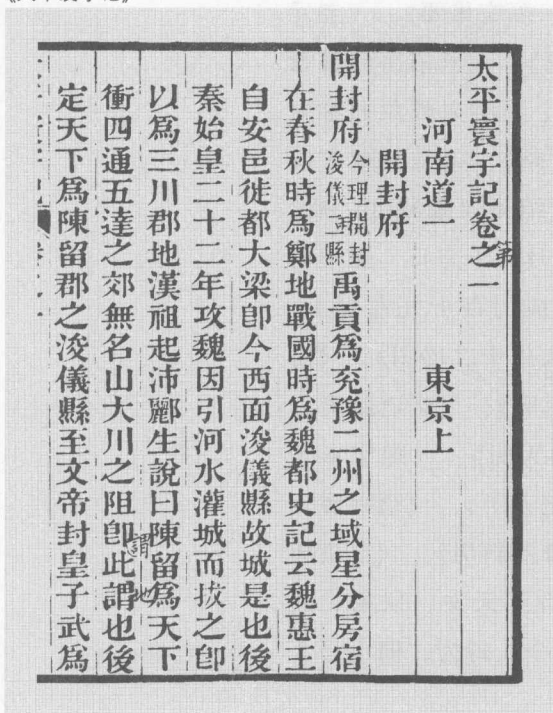 太平寰宇記卷之一
第
河南道一　東京上
開封府
開封府今理開封浚儀二縣禹貢為兗豫二州之域星分房宿
在春秋時為鄭地戰國時為魏都史記云魏惠王
自安邑徙都大梁卽今西面浚儀縣故城是也後
秦始皇二十二年攻魏因引河水灌城而拔之卽
以為三川郡地漢祖起沛酈生說曰陳留為天下
衝四通五達之郊無名山大川之阻卽此謂也後
謂 地
定天下為陳留郡之浚儀縣至文帝封皇子武為